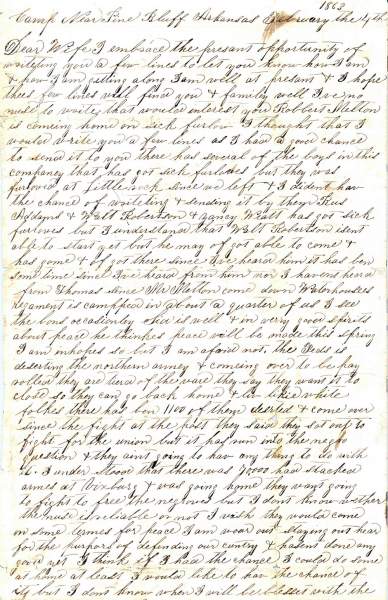 1863
Camp Near Pine Bluff Arkansas February the 4th
Dear Wife I embrace the present opportunity of
writeing you a few lines to let you know how I am
& how I am getting along I am well at present & I hope
thees few lines will find you & family well I've no
nuse to write that would interest you Robbert Melton
is comeing home on sick furlow I thought that I
would write you a few lines as I had a good chance
to send it to you there has several of the boys in this
company that has got sick furlows but they was
furlowed at little rock since we left & I dident hav
the chance of writeing & sending it by them Rus
Addams & Walt Robertson & Wyatt has got sick
furlows but I understand that Walt Robertson isent
able to start yet but he may of got able to come &
has gone & of got there since I've heard from him it has ben
some time since I've heard from him nor I havent heard
from Thomas since Mr Melton come down Waterhouses
regament is campped in about a quarter of us I see
the boys occasionley is well & in very good spirits
about peace he thinkes peace will be made this spring
I am inhopes so but I am afraid not, the Feds is
deserting the northern armey & comeing over to be pay
rolled they are tierd of the ware they say they want it to
close so they can go back home & liv like white
folkes there has ben 1100 of them deserted & come over
since the fight at the post they said they sot out to
fight for the union but it has run into the negro
question & they aint going to hav any thing to do with
it. I under stood that there was 9000 had stacked
armes at Vixburg & was going home they want going
to fight to free the negroes but I dont know whither
the nuse is reliable or not I wish they would come
on some termes for peace I am woar out staying out hear
for the purpos of defending our cuntry & hasent done any
good yet I think if I had the chance I could do some
at home at least I would like to hav the chance of
but I dont know when I will be blessed with the